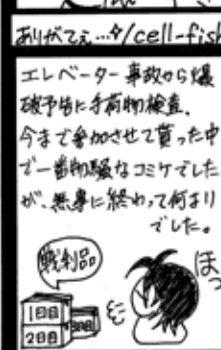 ありがてぇ…✧/cell-fish
エレベーター事故から爆
破予告に手荷物検査。
今まで参加させて貰った中
で一番物騒なコミケでした
が、無事に終わって何より
でした。
戦利品
ほっ
1日目
2日目
3日目